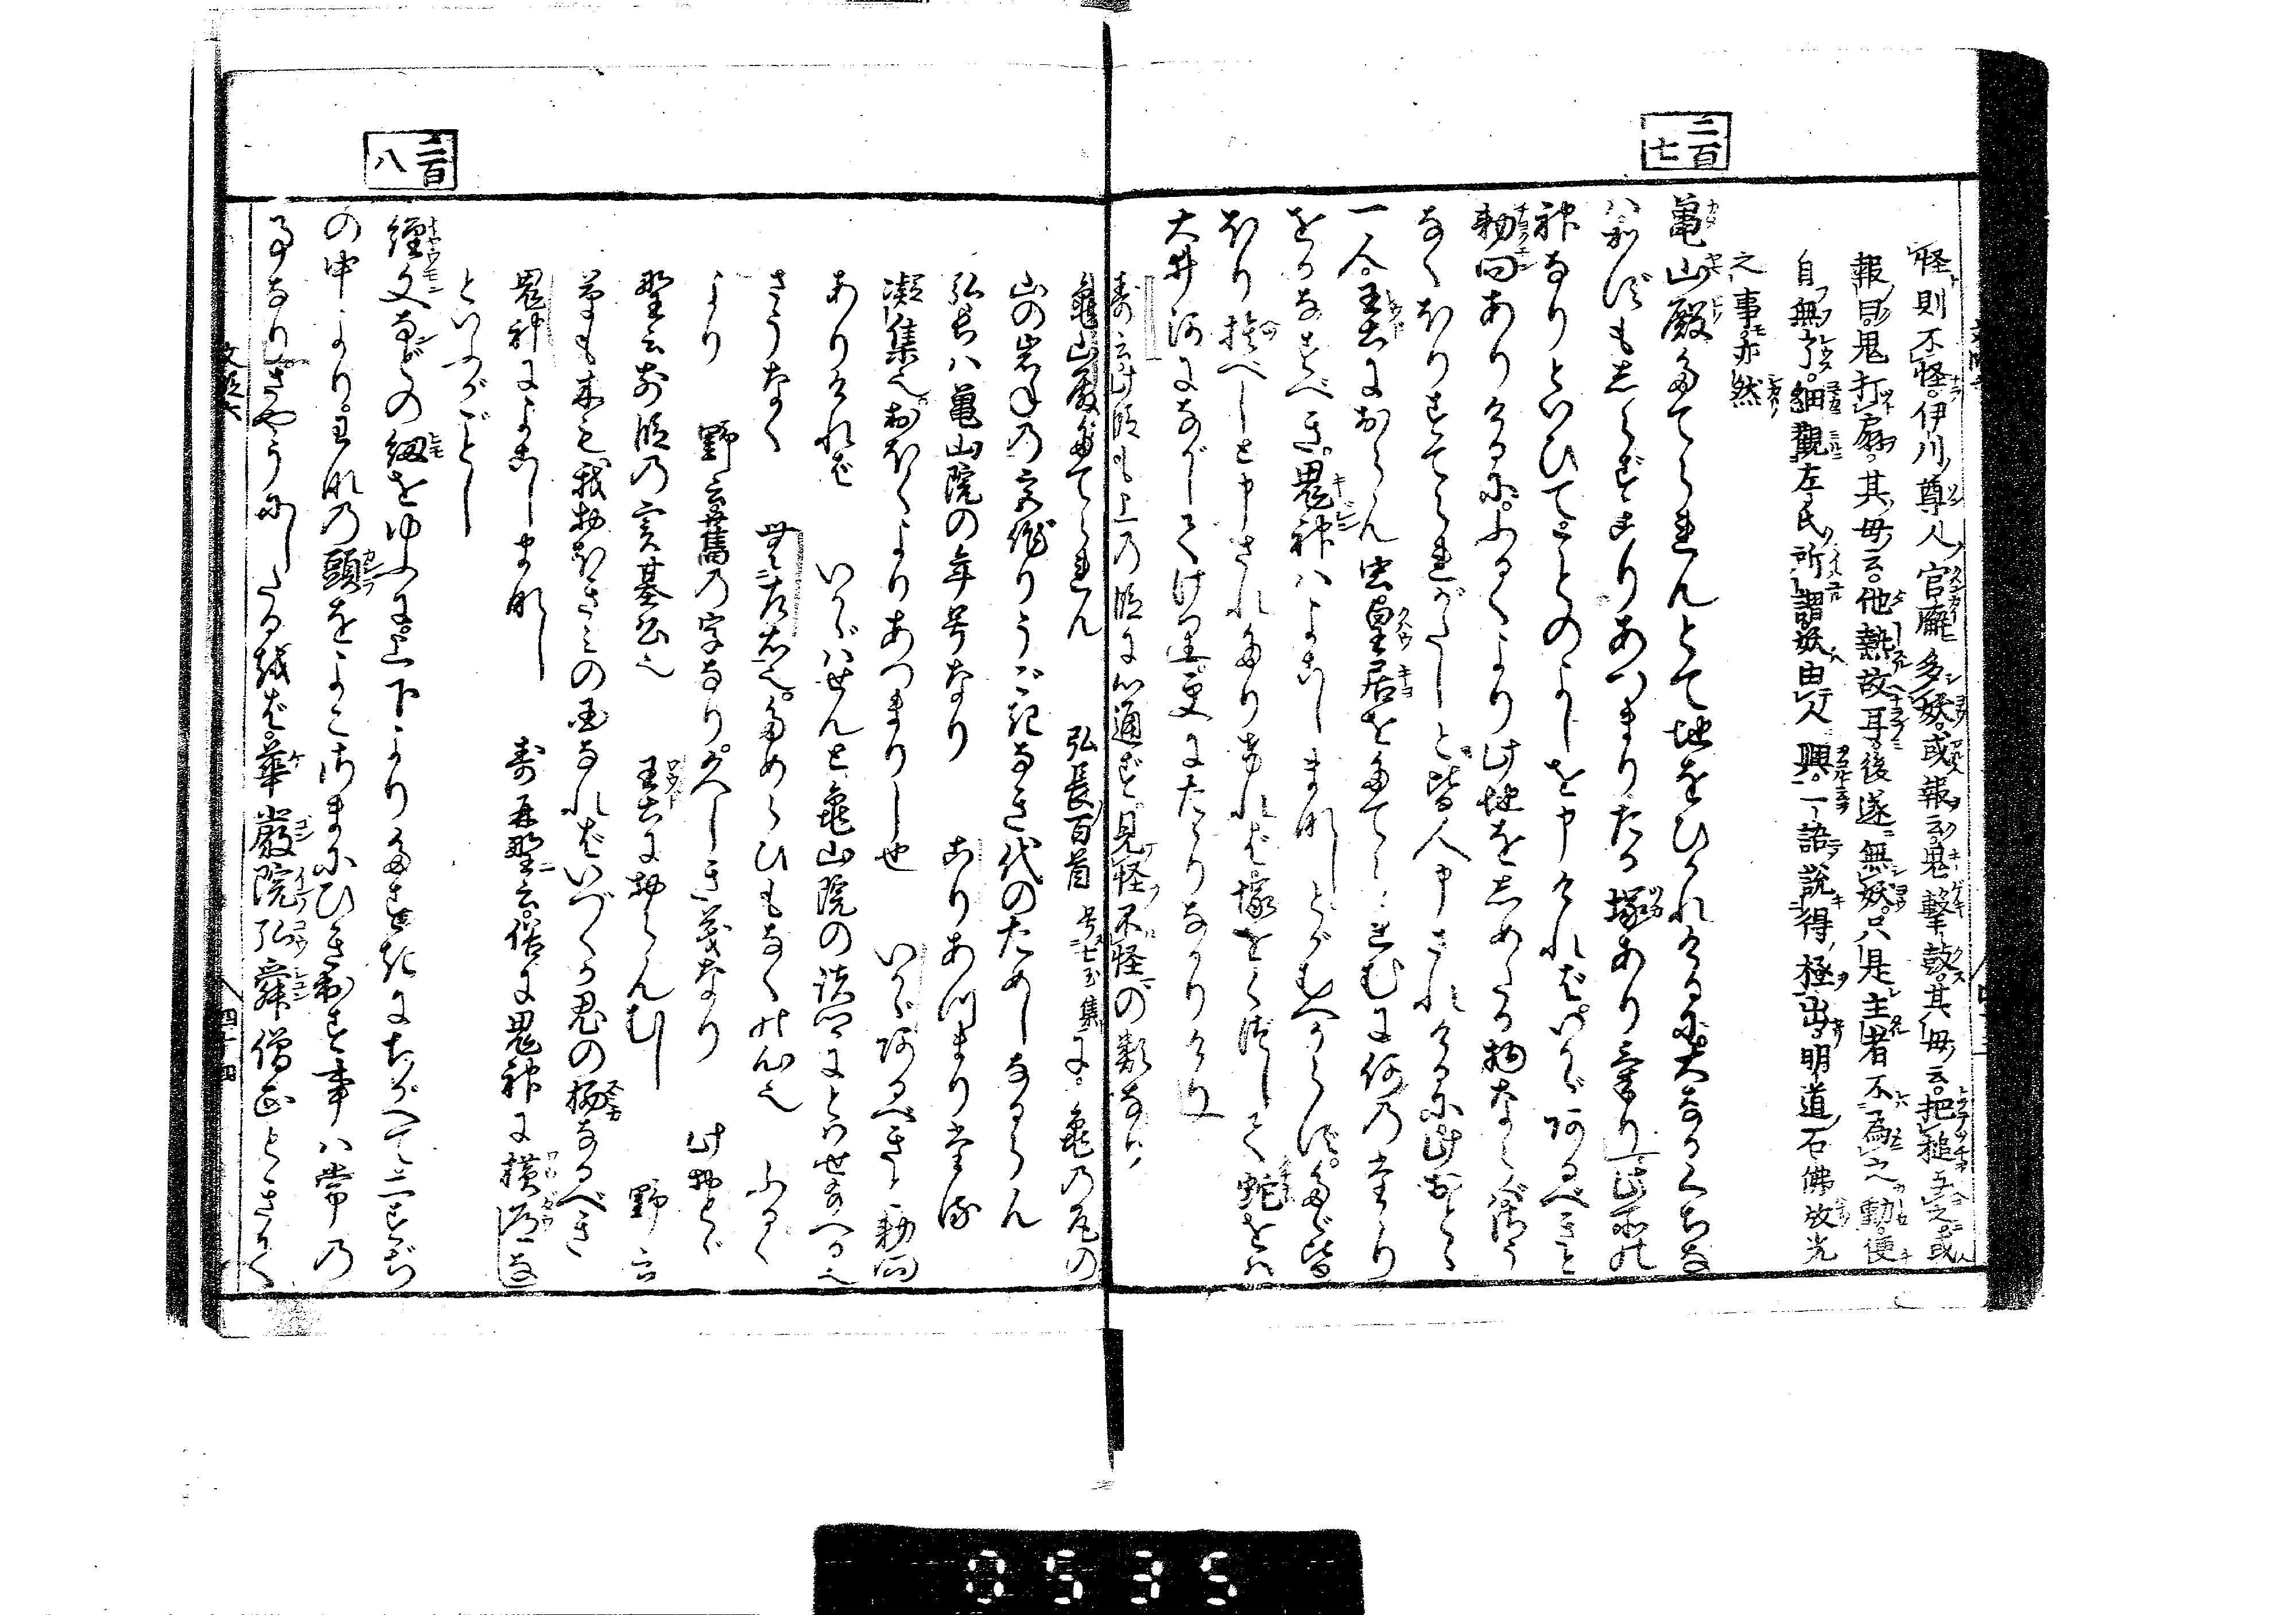 二百七
怪則不怪。伊川尊人官廨多妖。或報云。鬼撃鼓。其母云。把槌与之。或
報曰。鬼打扇。其母云。他熱故耳。後遂無妖。只是主者不為之動。便
自無了。細観左氏所謂妖由人興。一語説得極出。明道石佛放光
之事亦然
亀山殿たてられんとて地をひかれけるに。大なるくちな
は数もしらずこりあつまりたる塚ありけり。此所の
神なりといひて。ことのよしを申ければ。いかゞあるべきと
勅問ありけるに。ふるくより此地をしめたる物ならば。さう
なくほりすてられがたしと皆人申されけるに。此おとゞ
一人。王土におらん虫。皇居をたてられむに何のたゝり
をかなすべき。鬼神はよこしまなし。とがむべからず。たゞ皆
ほり捨べしと申されたりければ。塚をくづして蛇をば
大井河にながしてけり。更にたゝりなかりけり
寿云此段も上の段に心通ず見怪不怪の類なり
亀山殿たてられん　弘長百首 に。亀の尾の
山の岩ねの宮作りうごきなき代のためしなるらん
弘長ハ亀山院の年号なり　こりあつまり
凝集也。おほくよりあつまりし也　いかゞあるべきと勅問
ありければ　いかゞはせんと亀山院の
さうなく　無左右也。ためらひもなくの心也　ふるく
より　野云旧の字なり
野云前段の実基公也　王土に　野云
草も木も我大きみの国なればいづくか鬼の栖なるべき
鬼神によこしまなし　寿再野云。俗に鬼神に横道な
しといふがごとし
二百八
経文などの紐をゆふに。上下よりたすきにちがへて二すぢ
の中より。わなの頭をよこさまにひき出す事ハ常の
事なり。さやうにしたるをば。華厳院弘舜僧正ときて
四十四
0535